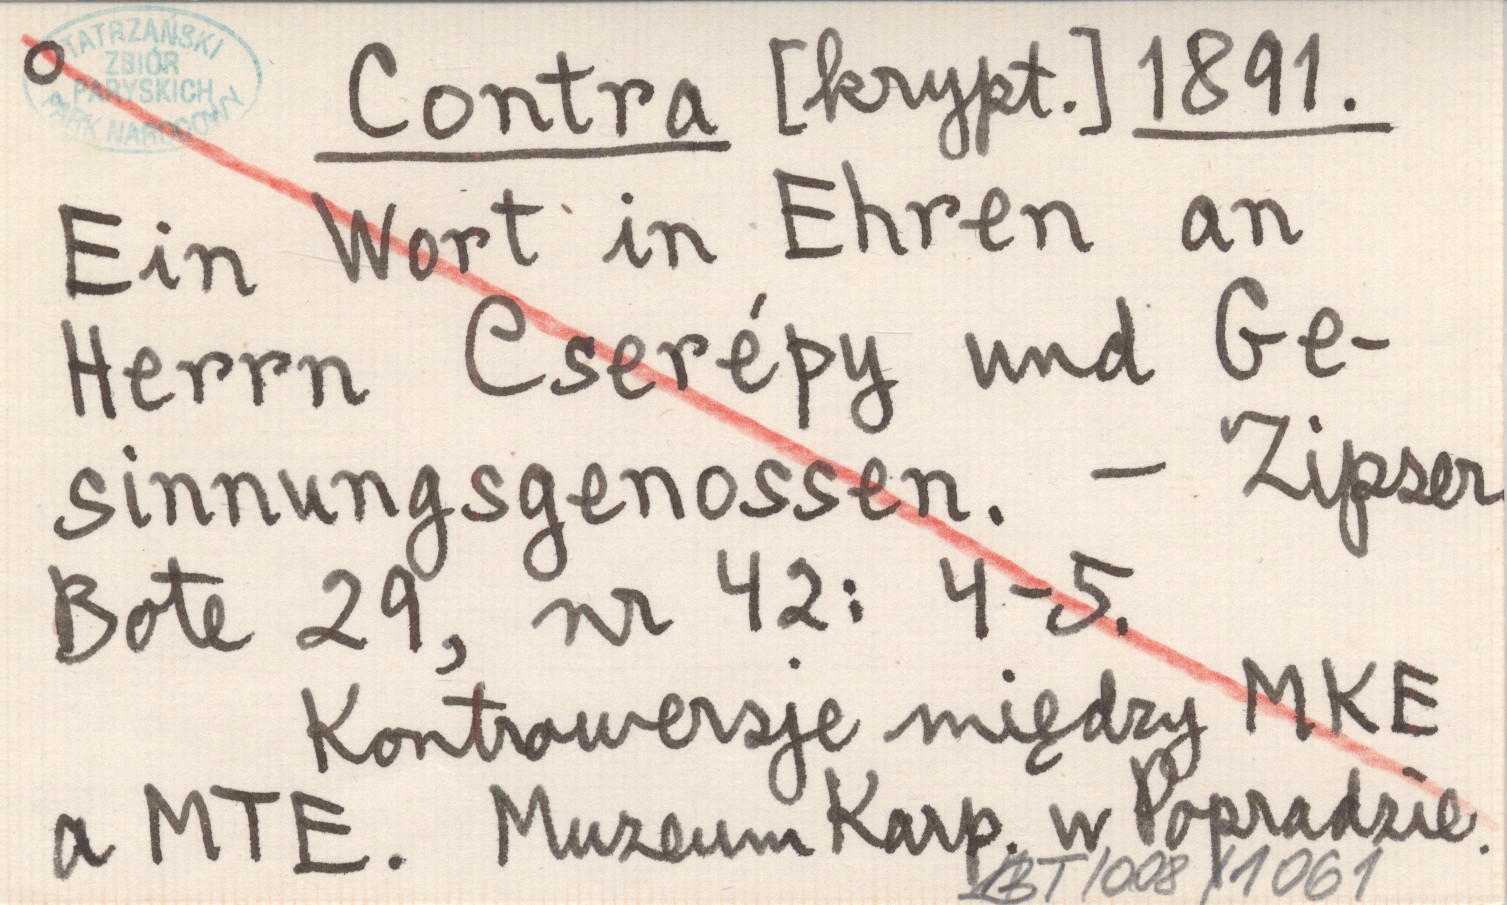 TATRZAŃSKI
ZBIÓR
PARYSKICH
PARK NARODOWY
o
Contra [krypt.] 1891.
Ein Wort in Ehren an
Herrn Cserépy und Ge-
sinnungsgenossen. – Zipser
Bote 29, nr 42: 4-5.
Kontrowersje między MKE
a MTE. Muzeum Karp. w Popradzie.
/1061